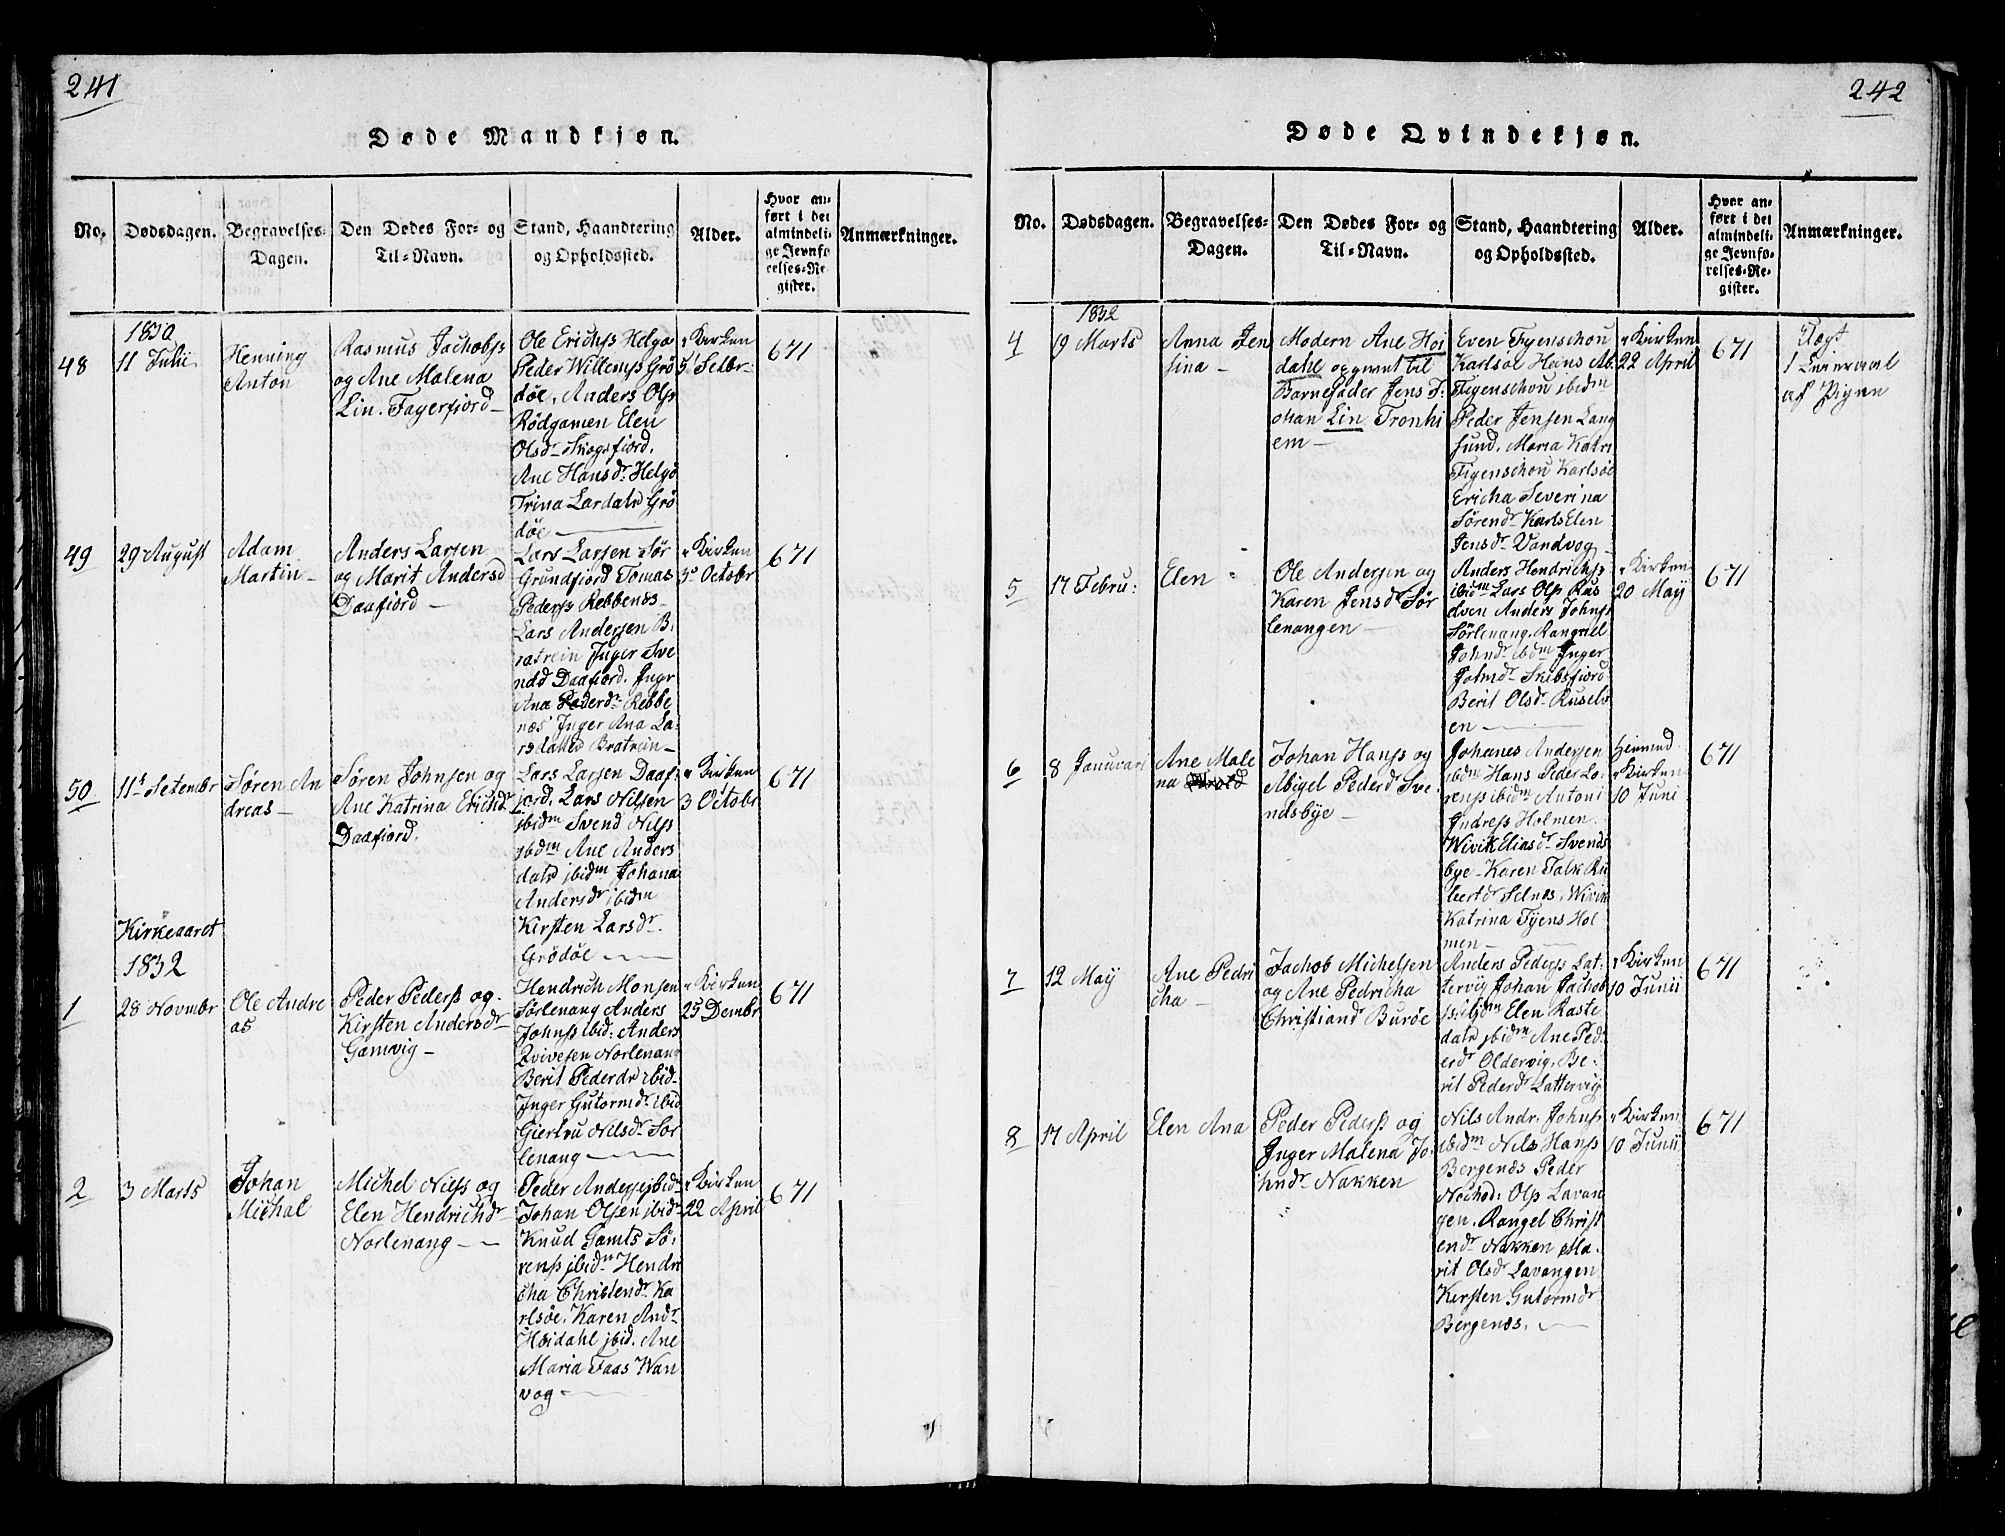 241
Døde Mandkjøn.
No.
Dødsdagen.
Begravelses-
Dagen.
Den Dødes For- og
Til-Navn.
Stand, Haandtering
og Opholdssted.
Alder.
Hvor an-
ført i det
almindeli-
ge Jevnfø-
relses-Re-
gister.
Anmærkninger.
48
1830
11 Julii
Henning
Anton
Rasmus Jachobss
og Ane Malena
Lin. Fagerfjord
Ole Erichss Helgø
Peder Willemss Grø
døe, Anders Olss
Rödgamen Elen
Olsdr Skogsfiord,
Ane Hansdr Helgø
Trina Lardatr Grö
döe
Kirken
5 Setbr
671
49
29 August
Adam
Martin
Anders Larsen
og Marit Andersd
Daafiord
Lars Larsen Sør
Grundfiord Tomas
Pederss Rebbenes
Lars Andersen B.
ratrein Inger Sve
ndsd Daafiord. Ingr
Ana Pederdr Rebbe
næs Inger Ana La
rsdatter Bratrein
Kirken
3 Octobr
671
50
11t Setembr
Søren An
dreas
Søren Johnsen og
Ane Katrina Erichdr
Daafiord.
Lars Larsen Daaf
jord, Lars Nilsen
ibidm Svend Nilss
ibdm Ane Anders
datr ibidm Johana
Andersdr ibidm
Kirsten Larsdr
Grödöe
Kirken
3 Octobr
671
Kirkeaaret
1832
1
28 Novmbr
Ole Andre
as
Peder Pederss og
Kirsten Andersdr
Gamvig
Hendrich Monsen
Sørlenang Anders
Johnss ibid: Anders
Qvivesen Norlenang
Berit Pederdr ibid
Inger Gutormdr ibid
Giertru Nilsdr Sør
lenang
Kirken
25 Dembr
671
2
3 Marts
Johan
Michal
Michel Nilss og
Elen Hendrichdr
Norlenang
Peder Andersejbid
Johan Olsen ibid
Knud Gamts Sø
renss ibidm Hendri
cha Christendr Ka
rlsöe, Karen Andr
Høidahl jbid. Ane
Maria Faas Wan
vog
Kirken
22 April
671
242
Døde Qvindekjøn.
No.
Dødsdagen.
Begravelses-
Dagen.
Den Dødes For- og
Til-Navn.
Stand, Haandtering
og Opholdssted.
Alder.
Hvor an-
ført i det
almindeli-
ge Jevnfø-
relses-Re-
gister.
Anmærkninger.
4
1832
19 Marts
Anna Jen
sina
Modern Ane Hoi
dahl
Barnefader Jens J:
ohan Lin Tronhi
em
Even Fyenschou
Karlsöe Hans Ab.
Figenschou ibidm
Peder Jensen Lang
sund, Maria Katri
Figenschou Karlsöe
Ericha Severina
Sørendr Karls Elen
Jensdr Vandvog
Kirken
22 April
671
1 Leiermaal
af Pigen
5
17 Febru:
Elen
Ole Andersen og
Karen Jensdr Sør
lenangen
Anders Hendrichss
ibidm Lars Olss Rus
elven Anders Johnss
Sørlenang. Rangniel
Johndr ibidm Inger
Johndr Skibsfiord
Berit Olsdr Ruselv
en
Kirken
20 Maij
671
6
8 Januvari
Ane Male
na
Johan Hanss og
Abigel Pederd Sve
ndsbye
Johanes Andersen
ibidm Hans Peder Lo
renss ibidm Antoni
Indress Holmen.
Wivik Eliasdr Svends
bye Karen Falk Ru
bertdr Selnes, Wivik
Katrina Fyens Hol
men
Kirken
10 Juni
671
7
12 Maij
Ane Pedri
cha
Jachob Michelsen
og Ane Pedricha
Christiand Burøe
Anders Pederss Lat
tervig Johan Jachob
ss ibidm Elen Raste
datr ibidm Ane Ped
erdr Oldervig, Be
rit Pederdr Lattervig
Kirken
10 Junii
671
8
17 April
Elen Ana
Peder Pederss og
Inger Malena Jo
hndr Nakken
Nils Andr. Johnss
ibidm Nils Hanss
Bergenes Peder
Nechod: Olss Lavan
gen. Rangel Christ
endr Nakken Ma
rit Olsdr Lavangen
Kirsten Gutormdr
Bergenes.
Kirken
10 Junii
671